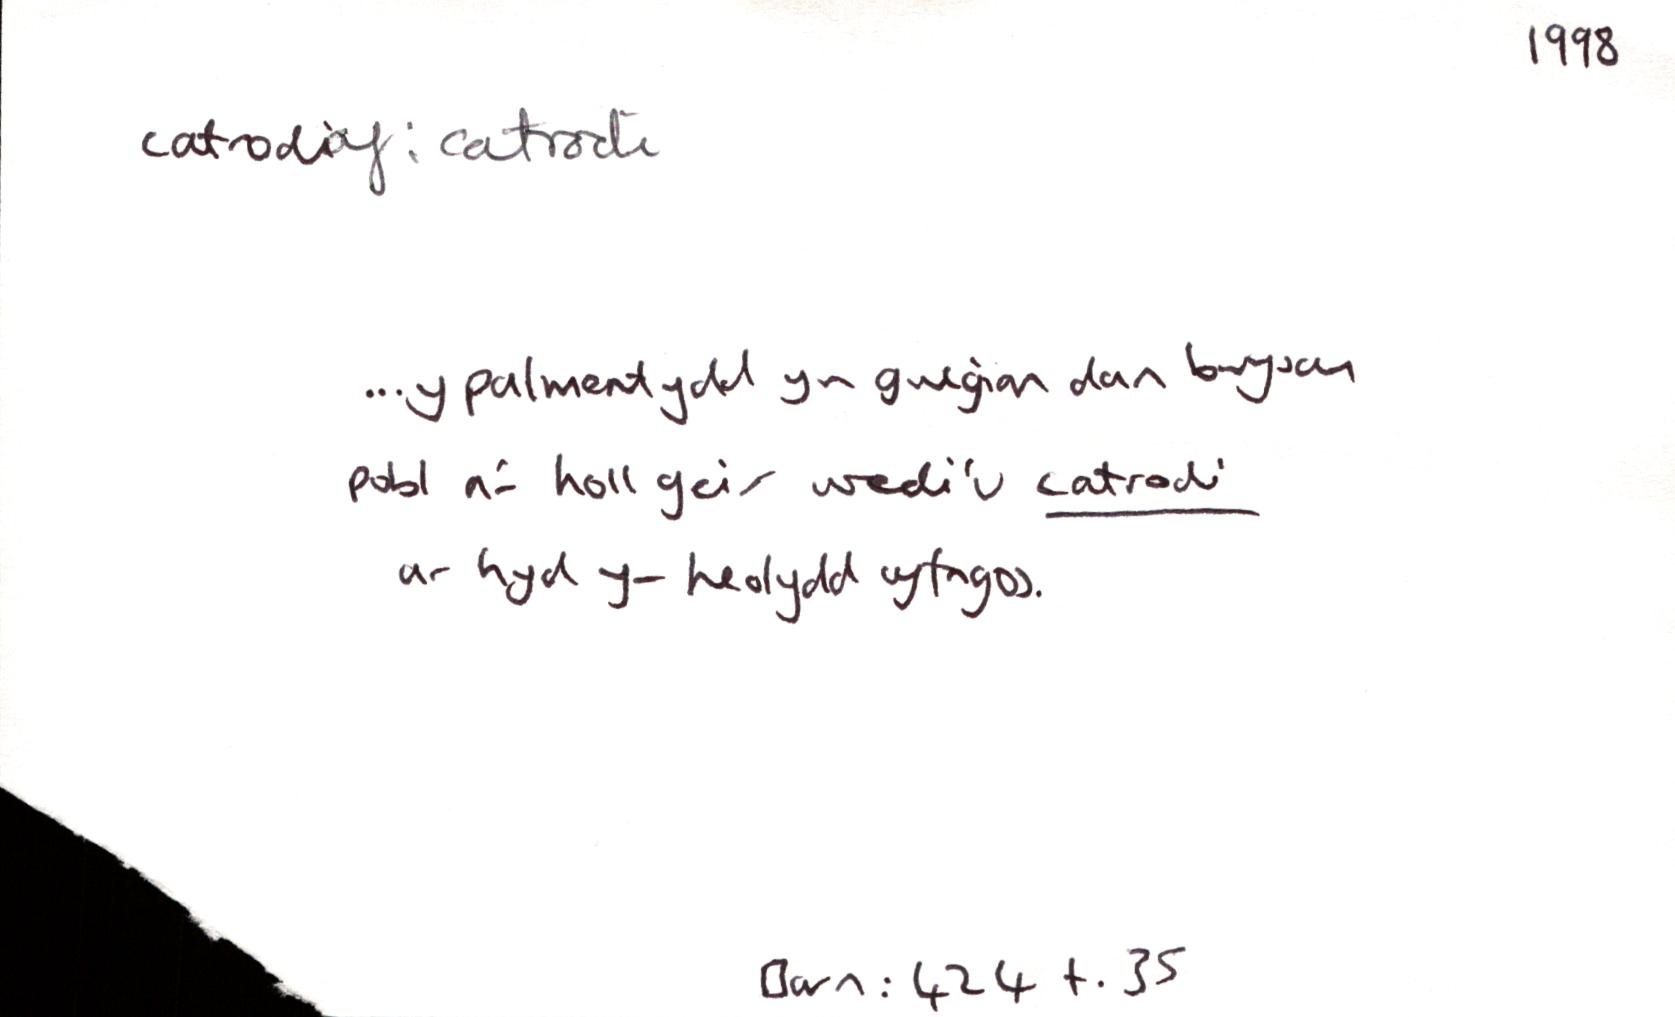 1998
catrodiaf: catrodi
...y palmentydd yn gwegian dan bwysau
pobl a'r holl geir wedi'u catrodi
ar hyd yr heolydd cyfagos.
Barn: 424 t. 35